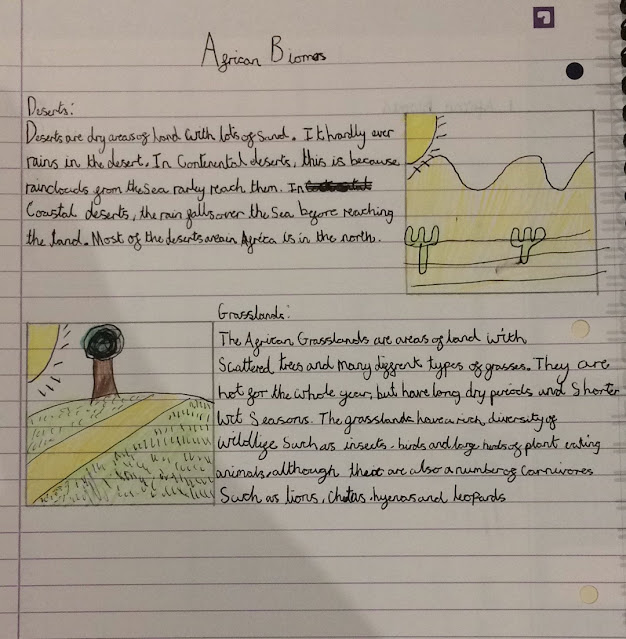 African Biomes
Deserts:
Deserts are dry areas of land with lots of sand. It hardly ever
rains in the desert. In Continental deserts, this is because
rainclouds from the sea rarley reach them. In
Coastal deserts, the rain falls over the Sea before reaching
the land. Most of the deserts area in Africa is in the north.
Grasslands:
The African Grasslands are areas of land with
Scattered trees and many diffrent types of grasses. They are
hot for the whole year, but have long dry periods and Shorter
wet Seasons. The grasslands have a rich diversity of
wildlife such as insects, birds and large herds of plant eating
animals, although there are also a number of Carnivores
Such as lions, Chetas, hyenas and leopards